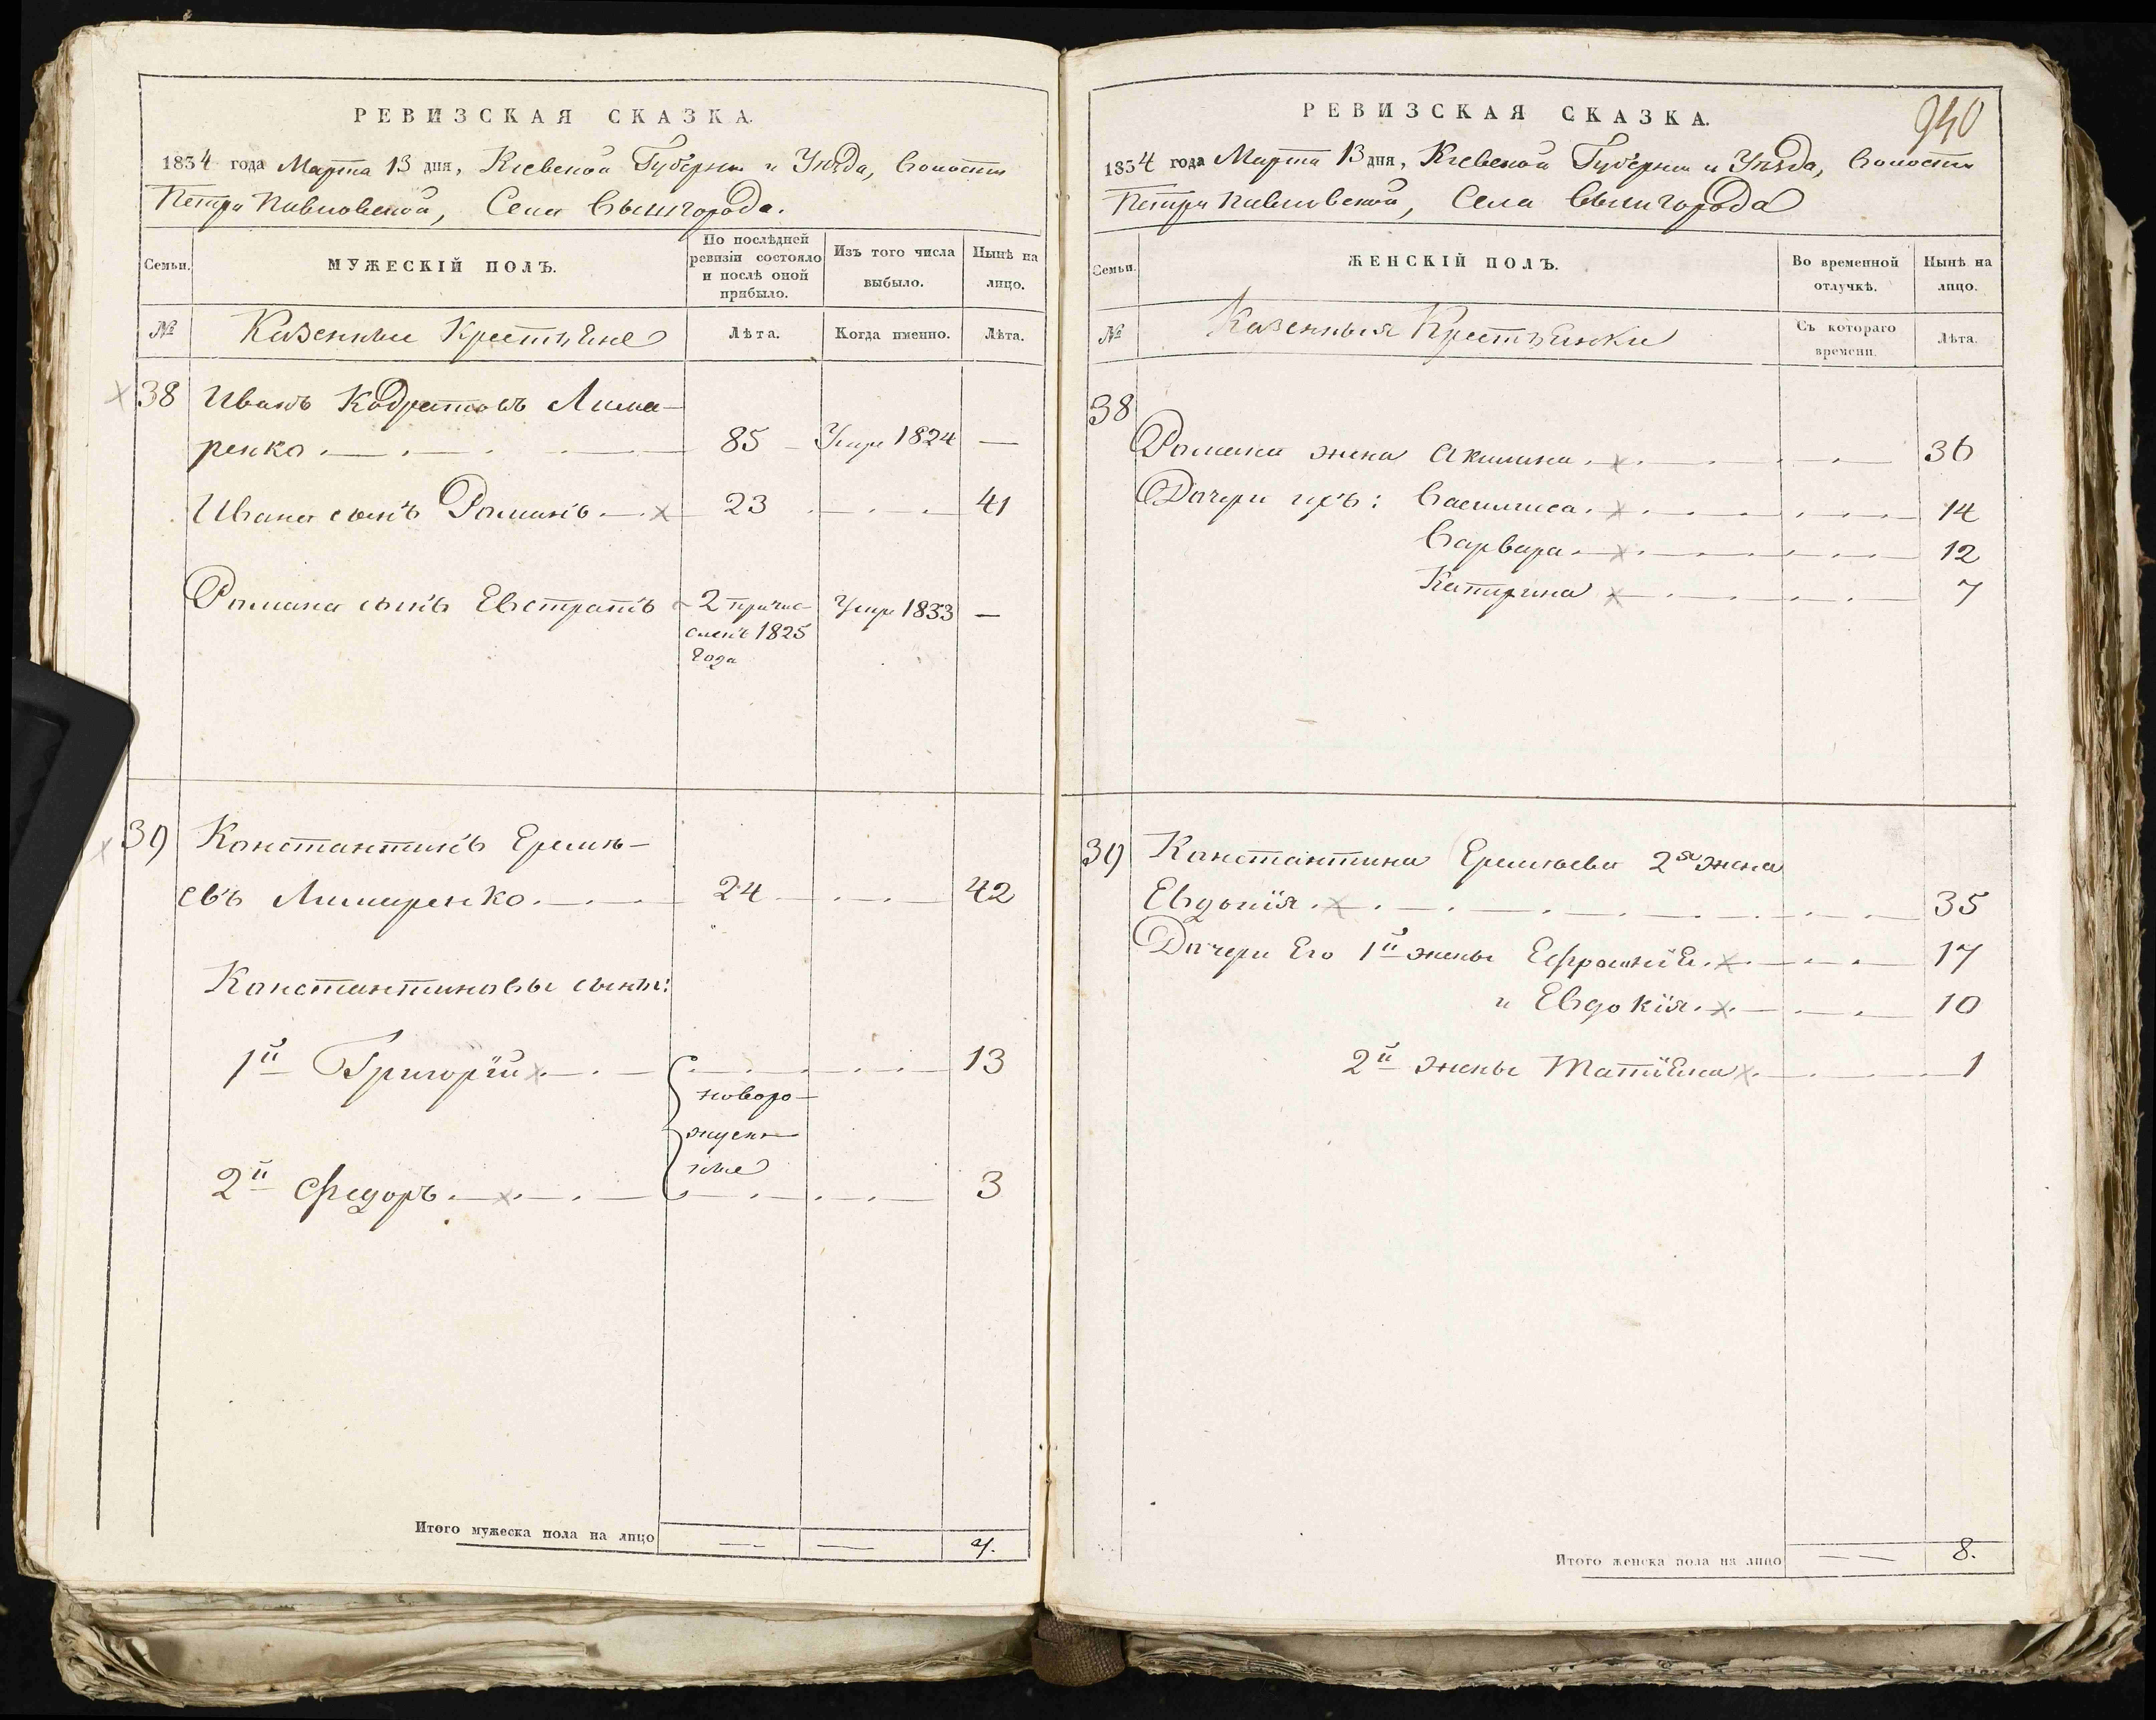 РЕВИЗСКАЯ СКАЗКА.
1834 года Марта 13 дня, Кіевской Губерніи и Уѣзда, Волости
Петро Павловской, Села Вышгорода.
Семьи.
МУЖЕСКІЙ ПОЛЪ.
По послѣдней
ревизіи состояло
и послѣ оной
прибыло.
Изъ того числа
выбыло.
Нынѣ на
лицо.
№
Казенные Крестьяне
Лѣта.
Когда именно.
Лѣта.
38 Иванъ Кодратовъ Лима-
ренко 85 Умре 1824 —
Ивана сынъ Романъ 23 41
Романа сынъ Евстратъ 2 причис- Умре 1833 —
сленъ 1825
года
39 Константинъ Еремѣ-
евъ Лимаренко 24 42
Константиновы сыны:
1й Григорій 13
новоро-
жден-
ные
2й Федоръ 3
Итого мужеска пола на лицо — — 4.
940
РЕВИЗСКАЯ СКАЗКА.
1834 года Марта 13 дня, Кіевской Губерніи и Уѣзда, Волости
Петро Павловской, Села Вышгорода
Семьи.
ЖЕНСКІЙ ПОЛЪ.
Во временной
отлучкѣ.
Нынѣ на
лицо.
№
Казенныя Крестьянки
Съ котораго
времени.
Лѣта.
38
Романа жена Акилина 36
Дочери ихъ: Василиса 14
Варвара 12
Катерина 7
39 Константина Еремѣева 2я жена
Евдокія 35
Дочери Его 1й жены Ефросинія 17
и Евдокія 10
2й жены Татіяна 1
Итого женска пола на лицо — — 8.